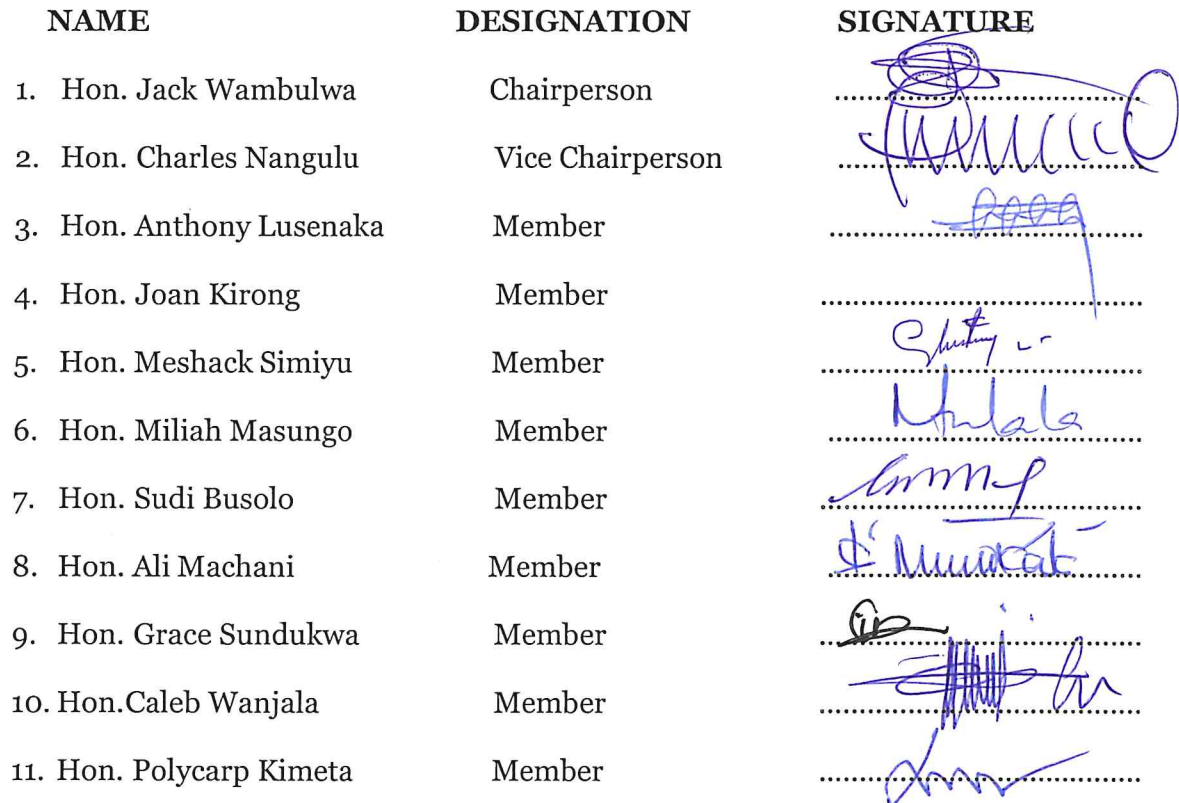 NAME DESIGNATION SIGNATURE
1. Hon. Jack Wambulwa Chairperson ........................................
2. Hon. Charles Nangulu Vice Chairperson ........................................
3. Hon. Anthony Lusenaka Member ........................................
4. Hon. Joan Kirong Member ........................................
5. Hon. Meshack Simiyu Member ........................................
6. Hon. Miliah Masungo Member ........................................
7. Hon. Sudi Busolo Member ........................................
8. Hon. Ali Machani Member ........................................
9. Hon. Grace Sundukwa Member ........................................
10. Hon.Caleb Wanjala Member ........................................
11. Hon. Polycarp Kimeta Member ........................................